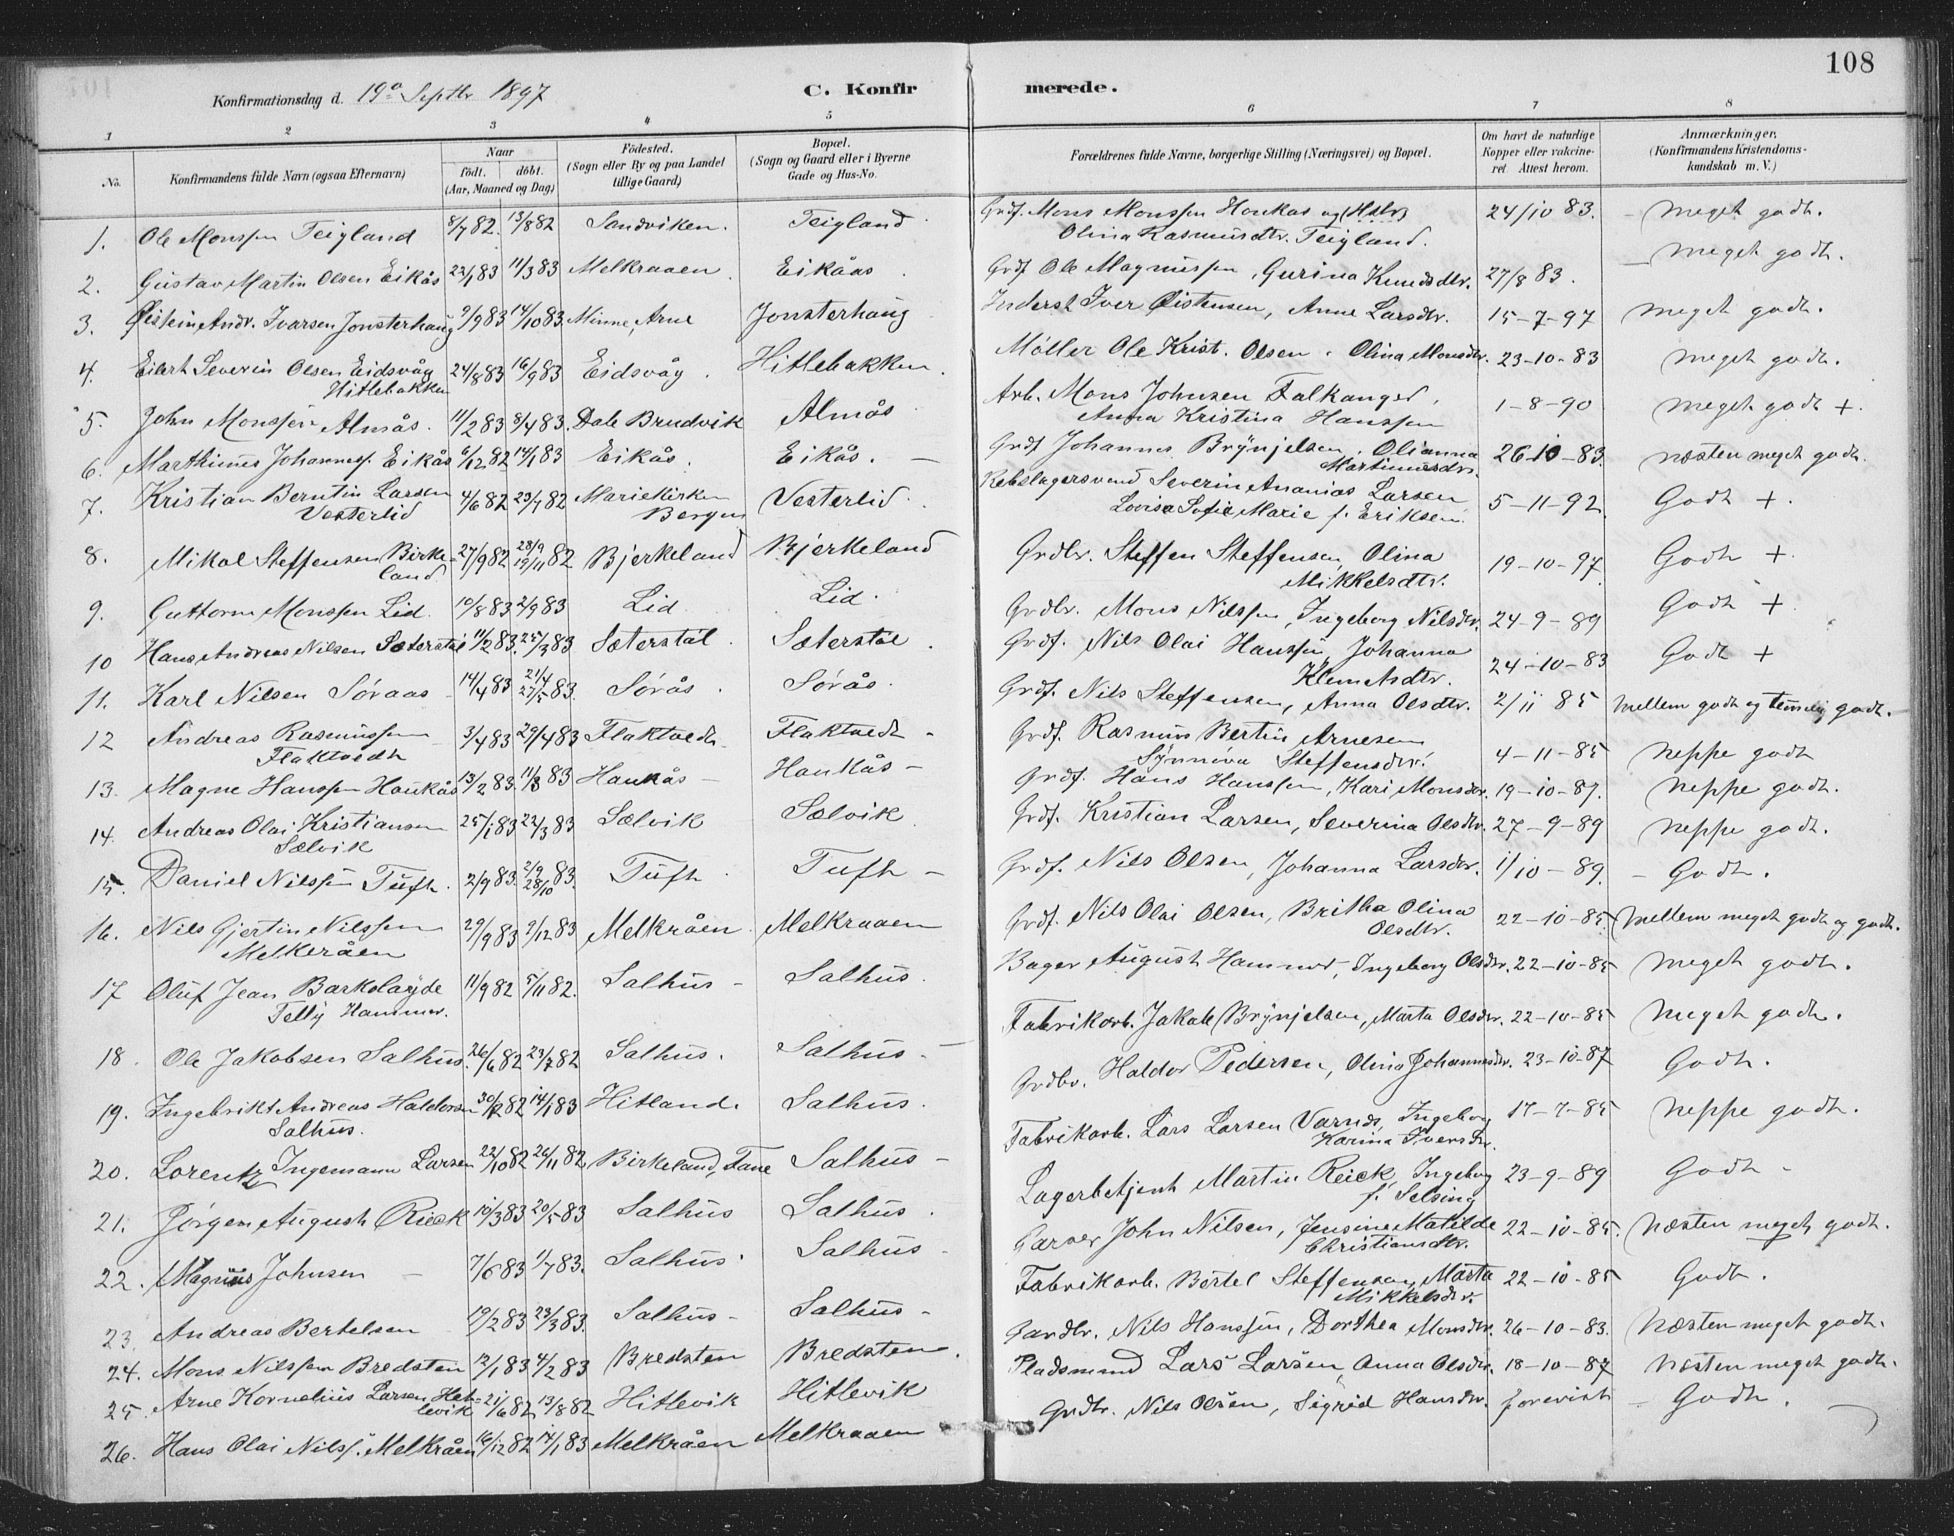 108
Konfirmationsdag d. 19de Septbr 1897 C. Konfirmerede.
1 2 3 4 5 6 7 8
No. Konfirmandens fulde Navn (ogsaa Efternavn) Naar født. døbt. (Aar, Maaned og Dag) Fødested. (Sogn eller By og paa Landet tillige Gaard) Bopæl. (Sogn og Gaard eller i Byerne Gade og Hus-No. Forældrenes fulde Navne, borgerlige Stilling (Næringsvei) og Bopæl. Om havt de naturlige Kopper eller vakcineret. Attest herom. Anmærkninger. (Konfirmandens Kristendomskundskab m. V.)
1. Ole Monssen Teigland 8/7 82. 13/8 82 Sandviken. Teigland Grdf. Mons Monssen Houkas og (Hstr) Olina Rasmusdtr. Teigland. 24/10 83. - meget godt.
2. Gustav Martin Olsen Eikås 22/1 83 11/3 83 Melkraaen Eikåas Grdf Ole Magnussen, Gurina Knudsdtr. 27/8 83. - meget godt.
3. Øistein Andr. Ivarsen Jonsterhaug 9/9 83 14/10 83. Minne, Arne Jonsterhaug Inderst Iver Øistensen, Anne Larsdtr. 15-7-97 meget godt.
4. Eilert Severin Olsen Eidsvåg Hitlebakken 24/8 83 16/9 83 Eidsvåg. Hitlebakken. Møller Ole Krist. Olsen. Olina Monsdtr. 23-10-83 meget godt.
5. John Monssen Almås. 11/2 83 8/4 83. Dale Brudvik Almås Arb. Mons Johnsen Falkanger, Anna Kristina Hanssen 1-8-90 meget godt +.
6. Marthinus Johannesf. Eikås 6/12 82 14/1 83 Eikås. Eikås. - Grdf Johannes Brynjelsen, Olianna Martinusdtr. 26-10-83. næsten meget godt.
7. Kristian Berntin Larsen Vesterlid 4/6 82 23/7 82 Mariekirken Bergen Vesterlid. Rebslagersvend Severin Ananias Larsen Lovisa Sofie Marie f. Eriksen. 5-11-92. Godt +.
8. Mikal Steffensen Birkeland 27/9 82 28/9 19/11 82 Bjerkeland Bjerkeland Grdbr. Steffen Steffensen, Olina Mikkelsdtr. 19-10-97. Godt +.
9. Guttorm Monssen Lid. 19/8 83 2/9 83 Lid. Lid. Grdbr. Mons Nilssen, Ingeborg Nilsdtr. 24-9-89 Godt +.
10 Hans Andreas Nilsen Sæterstøl 11/2 83. 25/3 83 Sæterstøl. Sæterstøl. Grdf. Nils Olai Hanssen, Johanna Klemetsdtr. 24-10-83 Godt +
11. Karl Nilsen Søraas 14/4 83 21/4 27/5 83. Sørås. Sørås. Grdf. Nils Steffensen, Anna Olsdtr. 2/11 85 mellem godt og temelig godt.
12 Andreas Rasmussen Flaktvedt 3/4 83 29/4 83 Flaktvedt. Flaktvedt - Grdf. Rasmus Bertin Arnesen Synnøva Steffensdtr. 4-11-85 neppe godt
13. Magne Hanssen Haukås 13/2 83. 11/3 83 Haukås - Haukås - Grdf. Hans Hanssen, Kari Monsdtr. 19-10-87. neppe godt.
14. Andreas Olai Kristiansen Sælvik 25/1 83 22/3 83 Sælvik Sælvik. Grdf. Kristian Larsen, Severina Olsdtr. 27-9-89 neppe godt.
15. Daniel Nilssen Tuft. 2/9 83. 2/9 28/10 83. Tuft. Tuft - Grdf. Nils Olsen, Johanna Larsdtr. 1/10-89. - Godt.
16. Nils Gjertin Nilssen Melkeråen 29/9 83 9/12 83 Melkråen. Melkraaen Grdf. Nils Olai Olsen, Britha Olina Olsdtr. 22-10-85. mellem meget godt og godt.
17 Oluf Jean Barkolaijde Telly Hammer. 11/9 82 5/11 82. Salhus - Salhus. Bager August Hammer, Ingeborg Olsdtr. 22-10-85 meget godt.
18. Ole Jakobsen Salhus. 26/6 82 23/7 82 Salhus. Salhus - Fabrikarb. Jakob Brynjelsen, Marta Olsdtr. 22-10-85 meget godt.
19. Ingebrikt Andreas Haldorsen Salhus. 82 14/1 83 Hitland. Salhus. Grdbr. Haldor Pedersen, Olina Johannesdtr. 23-10-87 Godt.
20. Lorentz Ingemann Larsen 22/10 82 26/11 82 Birkeland, Fane Salhus - Fabrikarb. Lars Larsen Varnds, Ingeborg Karina Iversdtr. 17-7-85 neppe godt.
21. Jørgen August Rieck 10/3 83 20/5 83 Salhus Salhus. Lagerbetjent Martin Reick, Ingeborg f. Selsing 23-9-89 Godt -
22. Magnus Johnsen - 7/6 83 1/7 83. Salhus. Salhus - Garver John Nilsen, Jensine Matilde Christiansdtr. 22-10-85. næsten meget godt.
23. Andreas Bertelsen 19/2 83 23/3 83. Salhus - Salhus - Fabrikarb. Bertel Steffensen, Marta Mikkelsdtr. 22-10-85 Godt.
24. Mons Nilssen Bredsten 12/1 83 4/2 83 Bredsten Bredsten. Gardbr. Nils Hanssen, Dorthea Monsdtr. 26-10-83. næsten meget godt.
25. Arne Kornelius Larsen Hetlevik 21/6 82. 13/8 82 Hitlevik Hitlevik Pladsmand Lars Larsen, Anna Olsdtr. 18-10-87 næsten meget godt.
26. Hans Olai Nilsf. Melkråen 16/12 82 14/1 83 Melkråen Melkraaen Grdbr. Nils Olsen, Sigrid Hansdtr. forevist - Godt.